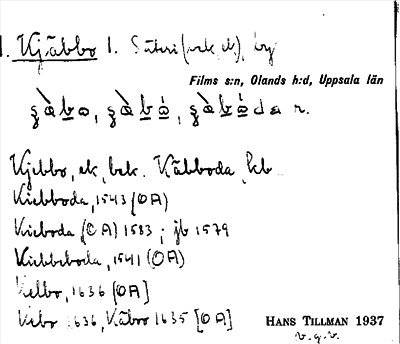 1. Kjäbbo 1. Säteri (ek, bek), by
Films s:n, Olands h:d, Uppsala län
Kjebbo, ek, bek. Käbboda, kb
Kiebboda, 1543 (OA)
Kieboda (OA) 1583; jb 1579
Kiebbeboda, 1541 (OA)
Kelbo, 1636 [OA]
Kebo 1636, Käbo 1635 [OA]
HANS TILLMAN 1937
v.g.v.